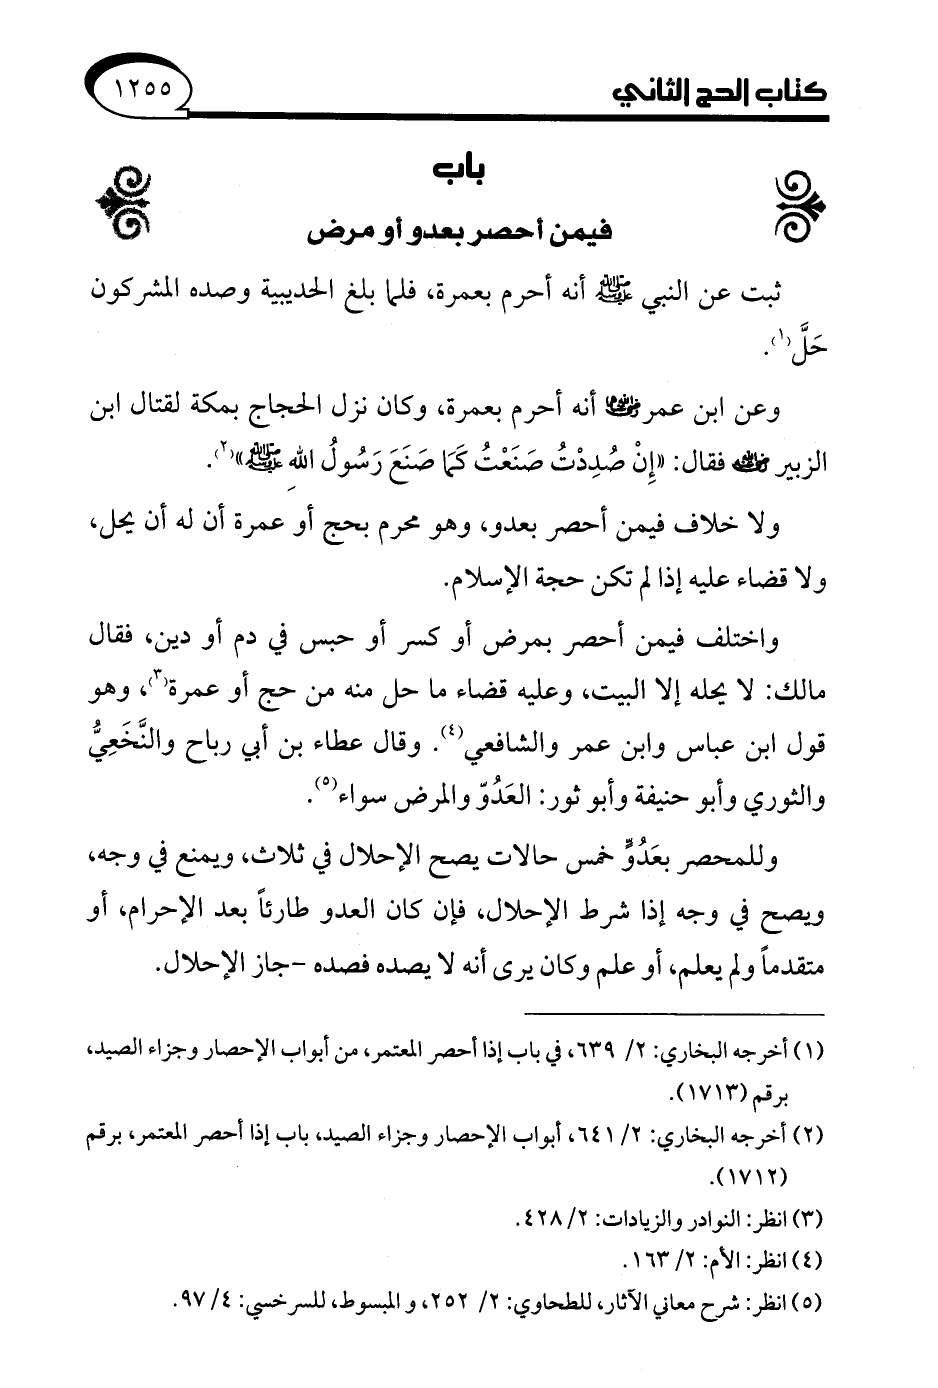 كتاب الحج الثاني
١٢٥٥
باب
فيمن أحصر بعدو أو مرض
ثبت عن النبي ﷺ أنه أحرم بعمرة، فلما بلغ الحديبية وصده المشركون
حَلَّ(١).
وعن ابن عمر رضي الله عنهما أنه أحرم بعمرة، وكان نزل الحجاج بمكة لقتال ابن
الزبير رضي الله عنه فقال: «إِنْ صُدِدْتُ صَنَعْتُ كَمَا صَنَعَ رَسُولُ الله ﷺ»(٢).
ولا خلاف فيمن أحصر بعدو، وهو محرم بحج أو عمرة أن له أن يحل،
ولا قضاء عليه إذا لم تكن حجة الإسلام.
واختلف فيمن أحصر بمرض أو كسر أو حبس في دم أو دين، فقال
مالك: لا يحله إلا البيت، وعليه قضاء ما حل منه من حج أو عمرة(٣)، وهو
قول ابن عباس وابن عمر والشافعي(٤). وقال عطاء بن أبي رباح والنَّخَعِيُّ
والثوري وأبو حنيفة وأبو ثور: العَدُوّ والمرض سواء(٥).
وللمحصر بعَدُوٍّ خمس حالات يصح الإحلال في ثلاث، ويمنع في وجه،
ويصح في وجه إذا شرط الإحلال، فإن كان العدو طارئاً بعد الإحرام، أو
متقدماً ولم يعلم، أو علم وكان يرى أنه لا يصده فصده -جاز الإحلال.
(١) أخرجه البخاري: ٢/ ٦٣٩، في باب إذا أحصر المعتمر، من أبواب الإحصار وجزاء الصيد،
برقم (١٧١٣).
(٢) أخرجه البخاري: ٢/ ٦٤١، أبواب الإحصار وجزاء الصيد، باب إذا أحصر المعتمر، برقم
(١٧١٢).
(٣) انظر: النوادر والزيادات: ٢/ ٤٢٨.
(٤) انظر: الأم: ٢/ ١٦٣.
(٥) انظر: شرح معاني الآثار، للطحاوي: ٢/ ٢٥٢، و المبسوط، للسرخسي: ٤/ ٩٧.